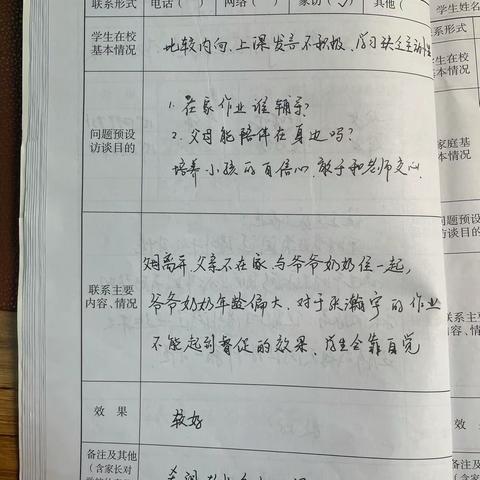 联系形式 电话（ ） 网络（ ） 家访（√） 其他（
学生在校基本情况
比较内向、上课发言不积极、学习缺乏主动性
问题预设访谈目的
1. 在家作业谁辅导？
2. 父母能陪伴在身边吗？
培养小孩的自信心，敢于和老师交心。
联系主要内容、情况
父亲不在家，与爷爷奶奶住一起，
爷爷奶奶年龄偏大、对于张瀚宇的作业
不能起到督促的效果、学生全靠自觉
效 果
较好
备注及其他
（含家长对
学生姓名
系形式
生在校
本情况
家庭基
本情况
问题预设
访谈目的
联系主要
内容、情况
效